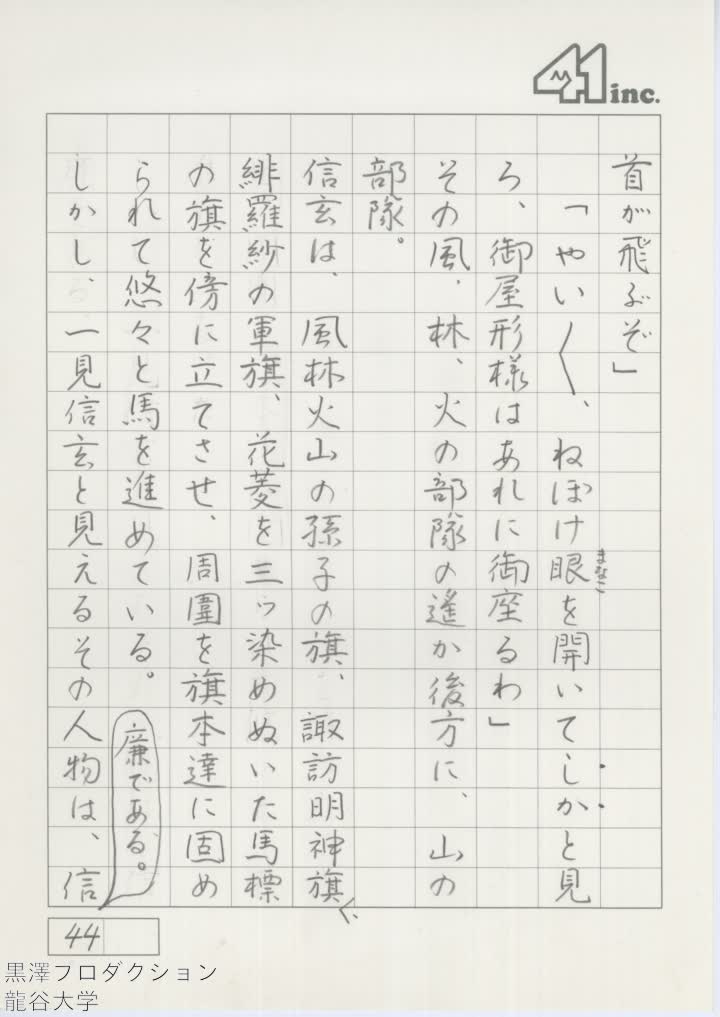 41 inc.
首が飛ぶぞ」
「やい〳〵、ねぼけ眼を開いてしかと見
まなこ
ろ、御屋形様はあれに御座るわ」
その風、林、火の部隊の遙か後方に、山の
部隊。
信玄は、風林火山の孫子の旗、諏訪明神旗、
緋羅紗の軍旗、花菱を三ッ染めぬいた馬標
の旗を傍に立てさせ、周囲を旗本達に固め
られて悠々と馬を進めている。
しかし、一見信玄と見えるその人物は、信
廉である。
44
黒澤プロダクション
龍谷大学